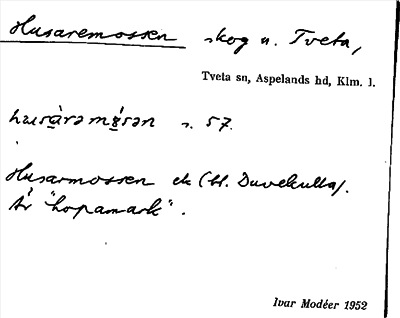 Husaremossen skog n. Tveta,
Tveta sn, Aspelands hd, Klm. l.
husàrəmɞ́sən s. 57.
Husarmossen ek (bl. Duvekulla).
Är "hopamark".
Ivar Modéer 1952